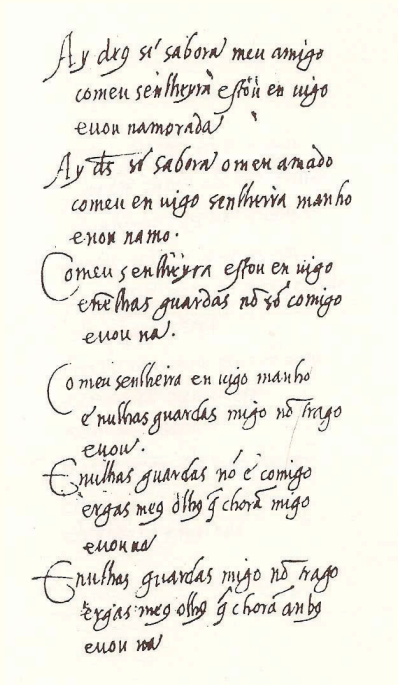 Ay deꝯ se sabora meu amigo
comeu senlheyra estou en uigo
euou namorada
Ay ds̄ se sabora o meu amado
comeu en uigo senlheira manho
euou namo.
Comeu senlheyra estou en uigo
enēlhas guardas nō so comigo
euou na.
Comeu senlheira en uigo manho
e nulhas guardas migo nō trago
euou.
Enulhas guardas nō é comigo
ergas meꝯ olhꝯ q̄ chorā migo
euou na
Enulhas guardas migo nō trago
ergas meꝯ olhꝯ q̄ chorā anbꝯ
euou na